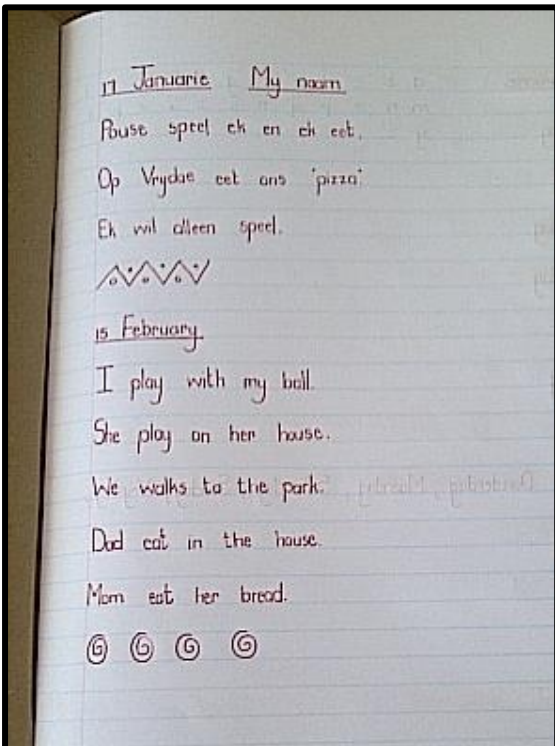 17 Januarie My naam
Pouse speel ek en ek eet.
Op Vrydae eet ons 'pizza'
Ek wil alleen speel.
15 February
I play with my ball.
She play on her house.
We walks to the park.
Dad eat in the house.
Mom eat her bread.